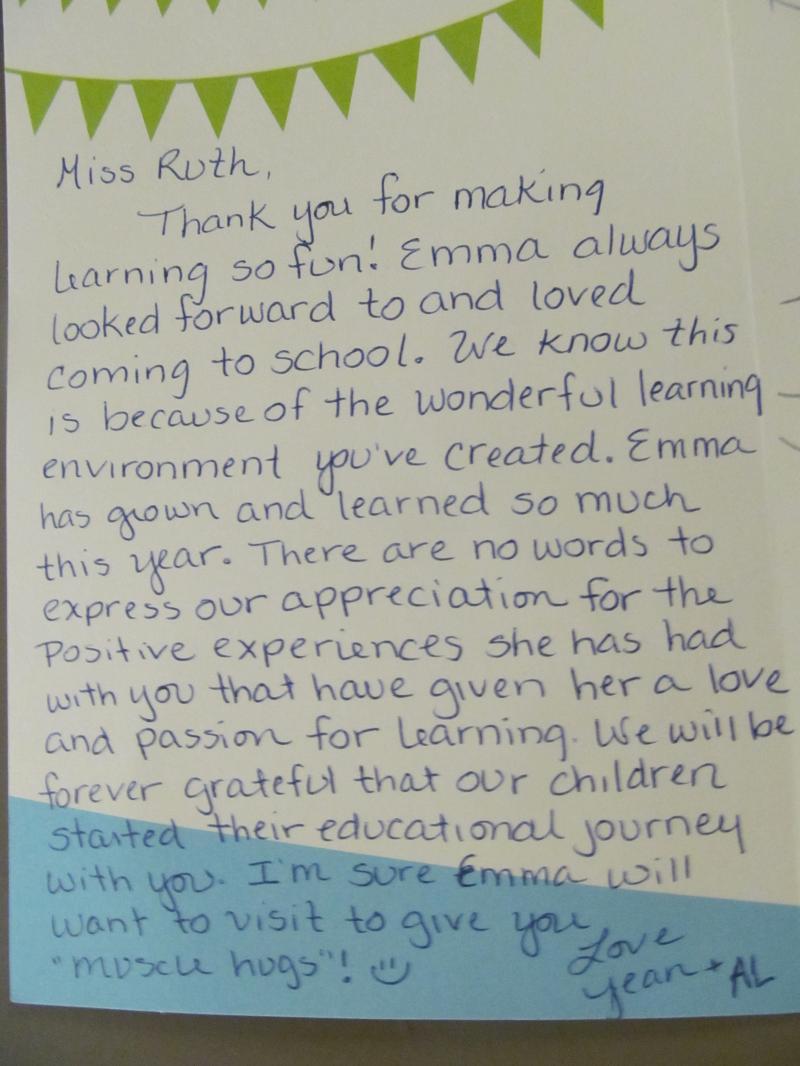 Miss Ruth,
Thank you for making
learning so fun! Emma always
looked forward to and loved
coming to school. We know this
is because of the wonderful learning
environment you've created. Emma
has grown and learned so much
this year. There are no words to
express our appreciation for the
positive experiences she has had
with you that have given her a love
and passion for learning. We will be
forever grateful that our children
started their educational journey
with you. I'm sure Emma will
want to visit to give you
"muscle hugs"! :)
Love
Jean + AL